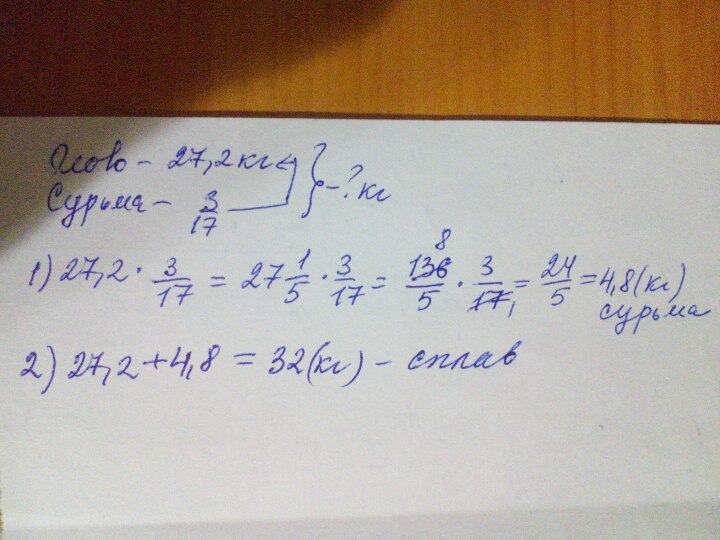 Олово - 27,2 кг
Сурьма - 3/17 } - ? кг
1) 27,2 · 3/17 = 27 1/5 · 3/17 = 136/5 8 · 3/17 1 = 24/5 = 4,8 (кг)
сурьма
2) 27,2 + 4,8 = 32 (кг) - сплав